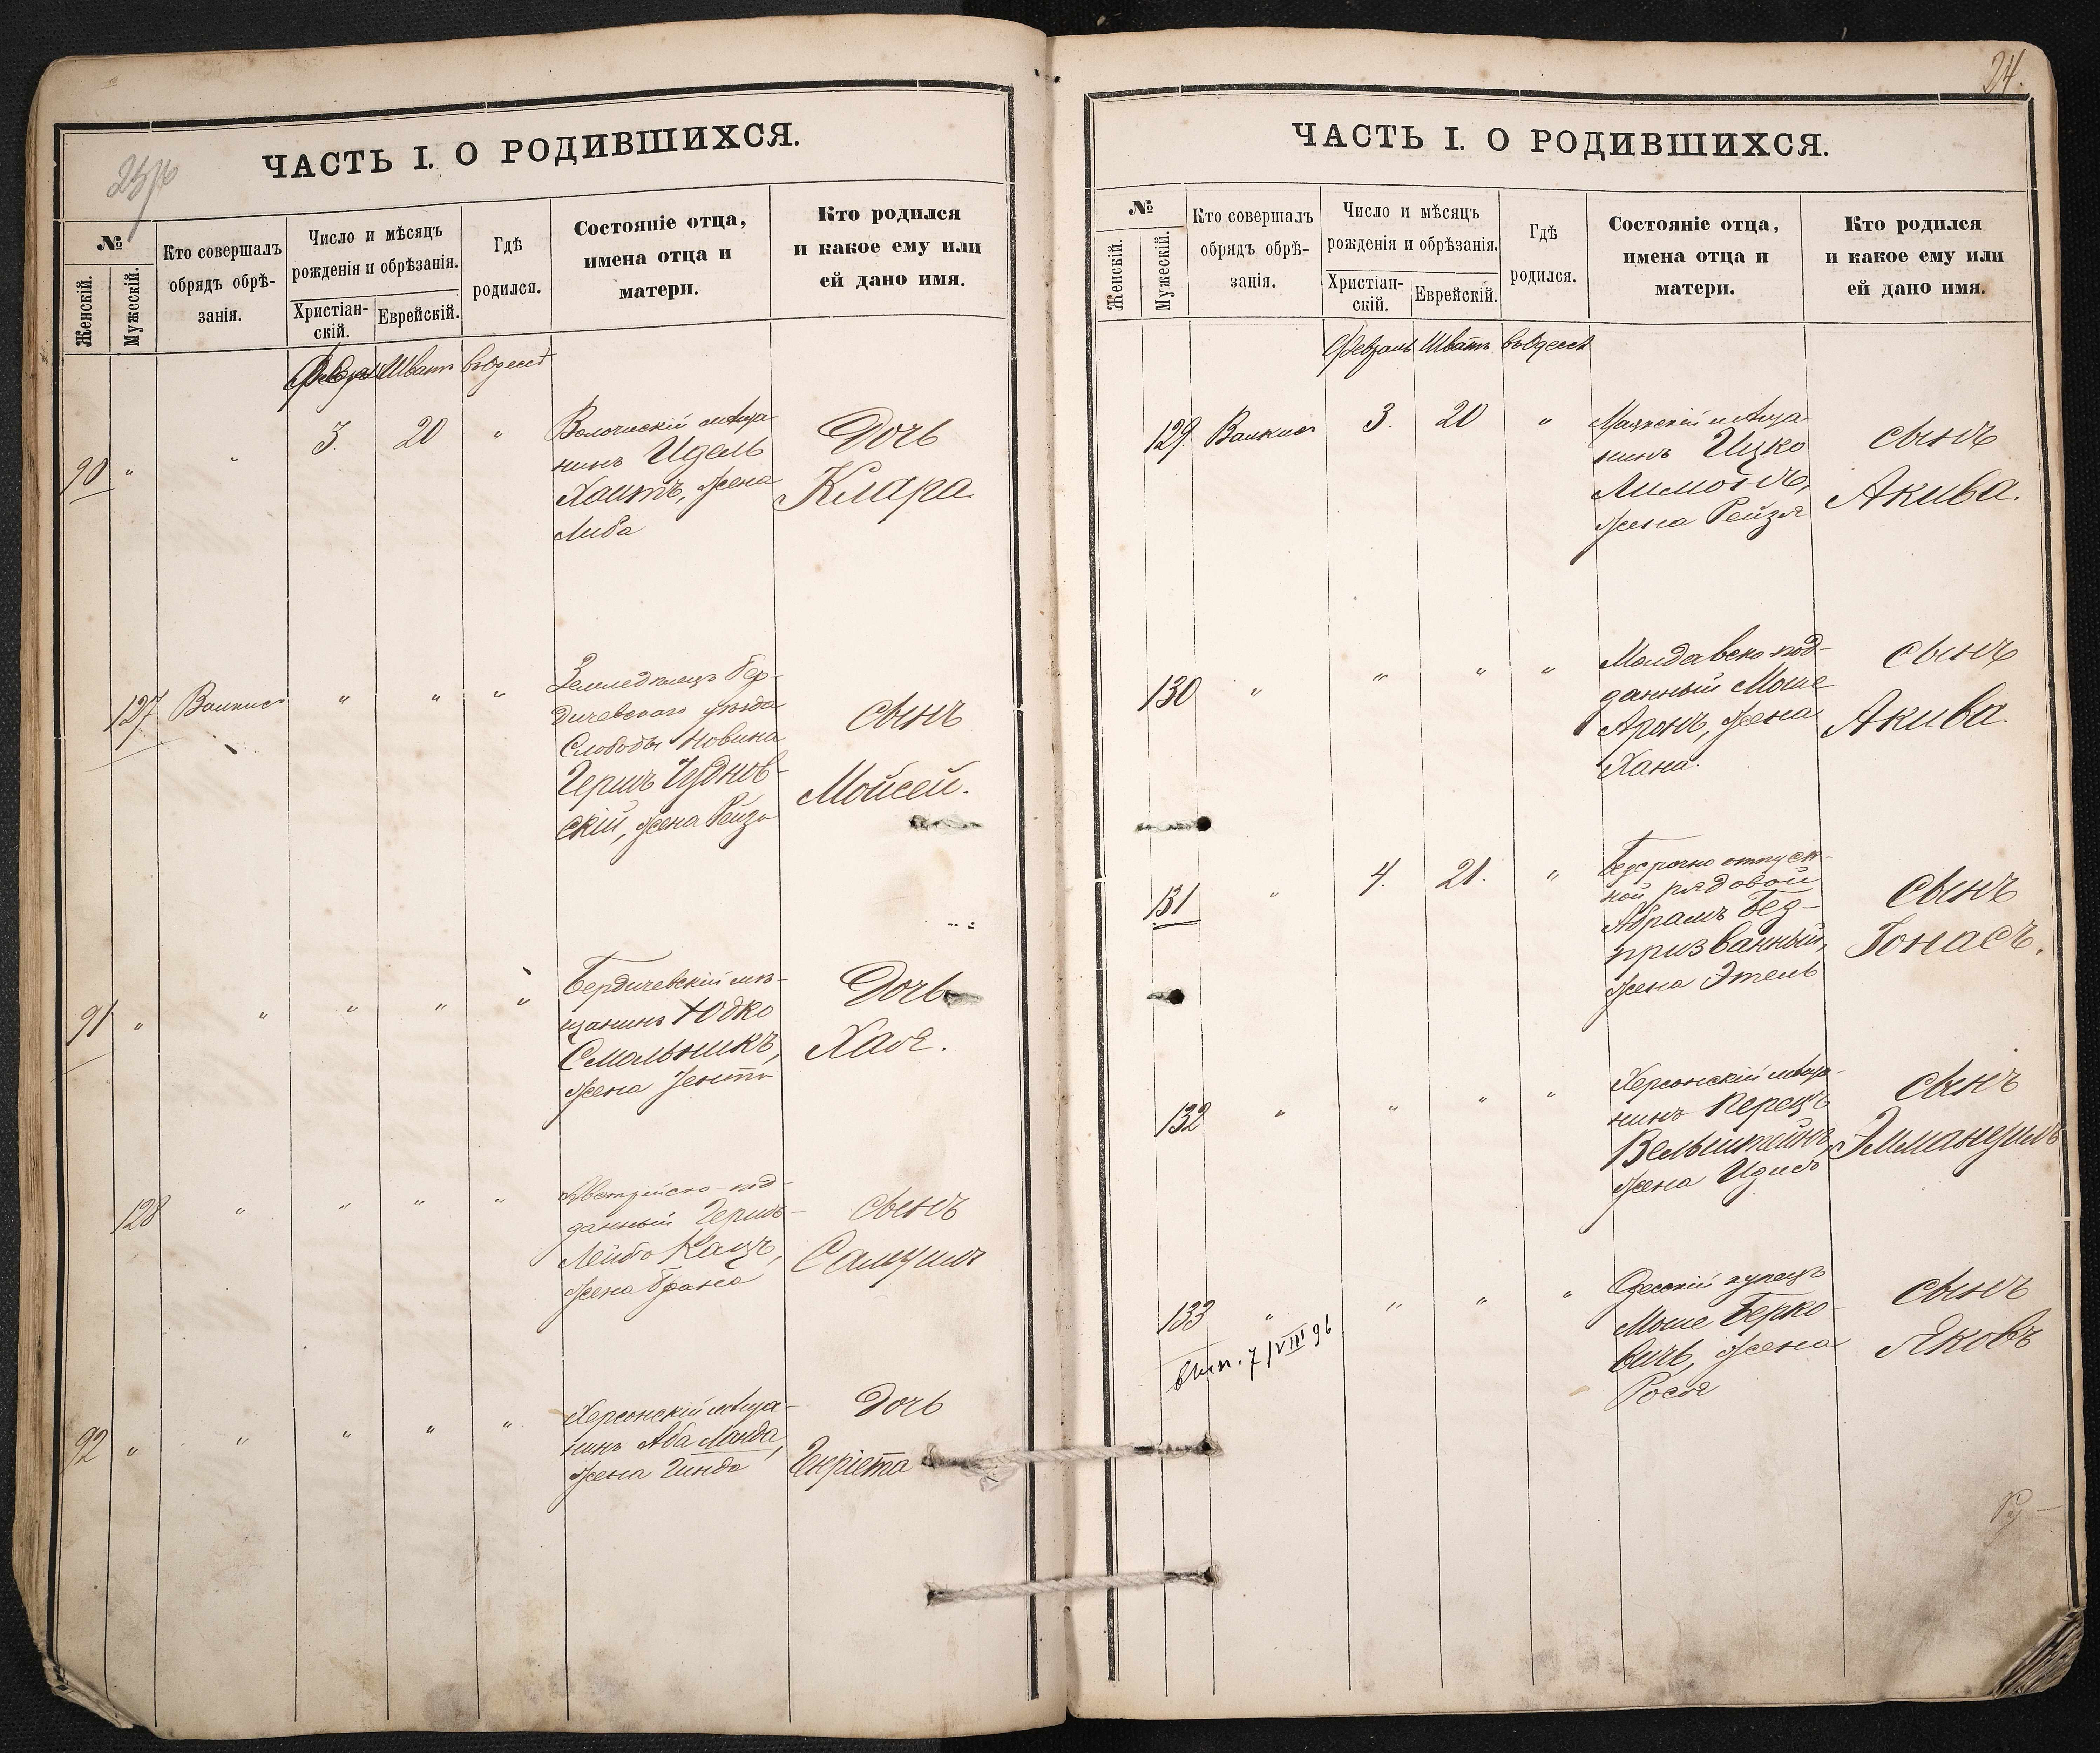 ЧАСТЬ I. О РОДИВШИХСЯ.
№
Женскій.
Мужескій.
Кто совершалъ
обрядъ обрѣ-
занія.
Число и мѣсяцъ
рожденія и обрѣзанія.
Христіан-
скій.
Еврейскій.
Гдѣ
родился.
Состояніе отца,
имена отца и
матери.
Кто родился
и какое ему или
ей дано имя.
Шватъ въ Одессѣ
90 " " 3. 20 "
мѣща-
нинъ Идель
Хаитъ, жена
Либа
Дочь
Клара
127 " " "
Земледѣлецъ Бер-
дичевскаго уѣзда
Слободы Новина
Гершъ Чуднов-
скій, жена Рейзя
сынъ
Мойсей.
91 " " " " "
Бердичевскій мѣ-
щанинъ Юдко
Смольникъ,
жена
Дочь
Хая.
128 " " " "
Австрійско-под-
данный Гершъ-
Лейбъ Кацъ,
жена Брана
сынъ
Самуилъ
92 " " " " "
Херсонскій мѣща-
нинъ Аба Ланда,
жена Гинда
Дочь
Генріета
24.
ЧАСТЬ I. О РОДИВШИХСЯ.
№
Женскій.
Мужескій.
Кто совершалъ
обрядъ обрѣ-
занія.
Число и мѣсяцъ
рожденія и обрѣзанія.
Христіан-
скій.
Еврейскій.
Гдѣ
родился.
Состояніе отца,
имена отца и
матери.
Кто родился
и какое ему или
ей дано имя.
Февраль Шватъ въ Одессѣ
129 3. 20 "
Маякскій мѣща-
нинъ Ицко
жена Рейзя
сынъ
Акива.
130 " " " "
Молдавско-под-
данный Моше
Аронъ, жена
Хана.
сынъ
Акива.
131 " 4. 21. "
Безсрочно отпуск-
ной рядовой
Абрамъ Без-
призванный,
жена Этель
сынъ
Іонасъ.
132 " " " "
Херсонскій мѣща-
нинъ Перецъ
Вельштейнъ,
жена
сынъ
Эммануилъ
133 " " " "
7/VIII 96
Одесскій купецъ
Моше Берко-
вичъ, жена
Рося
сынъ
Яковъ